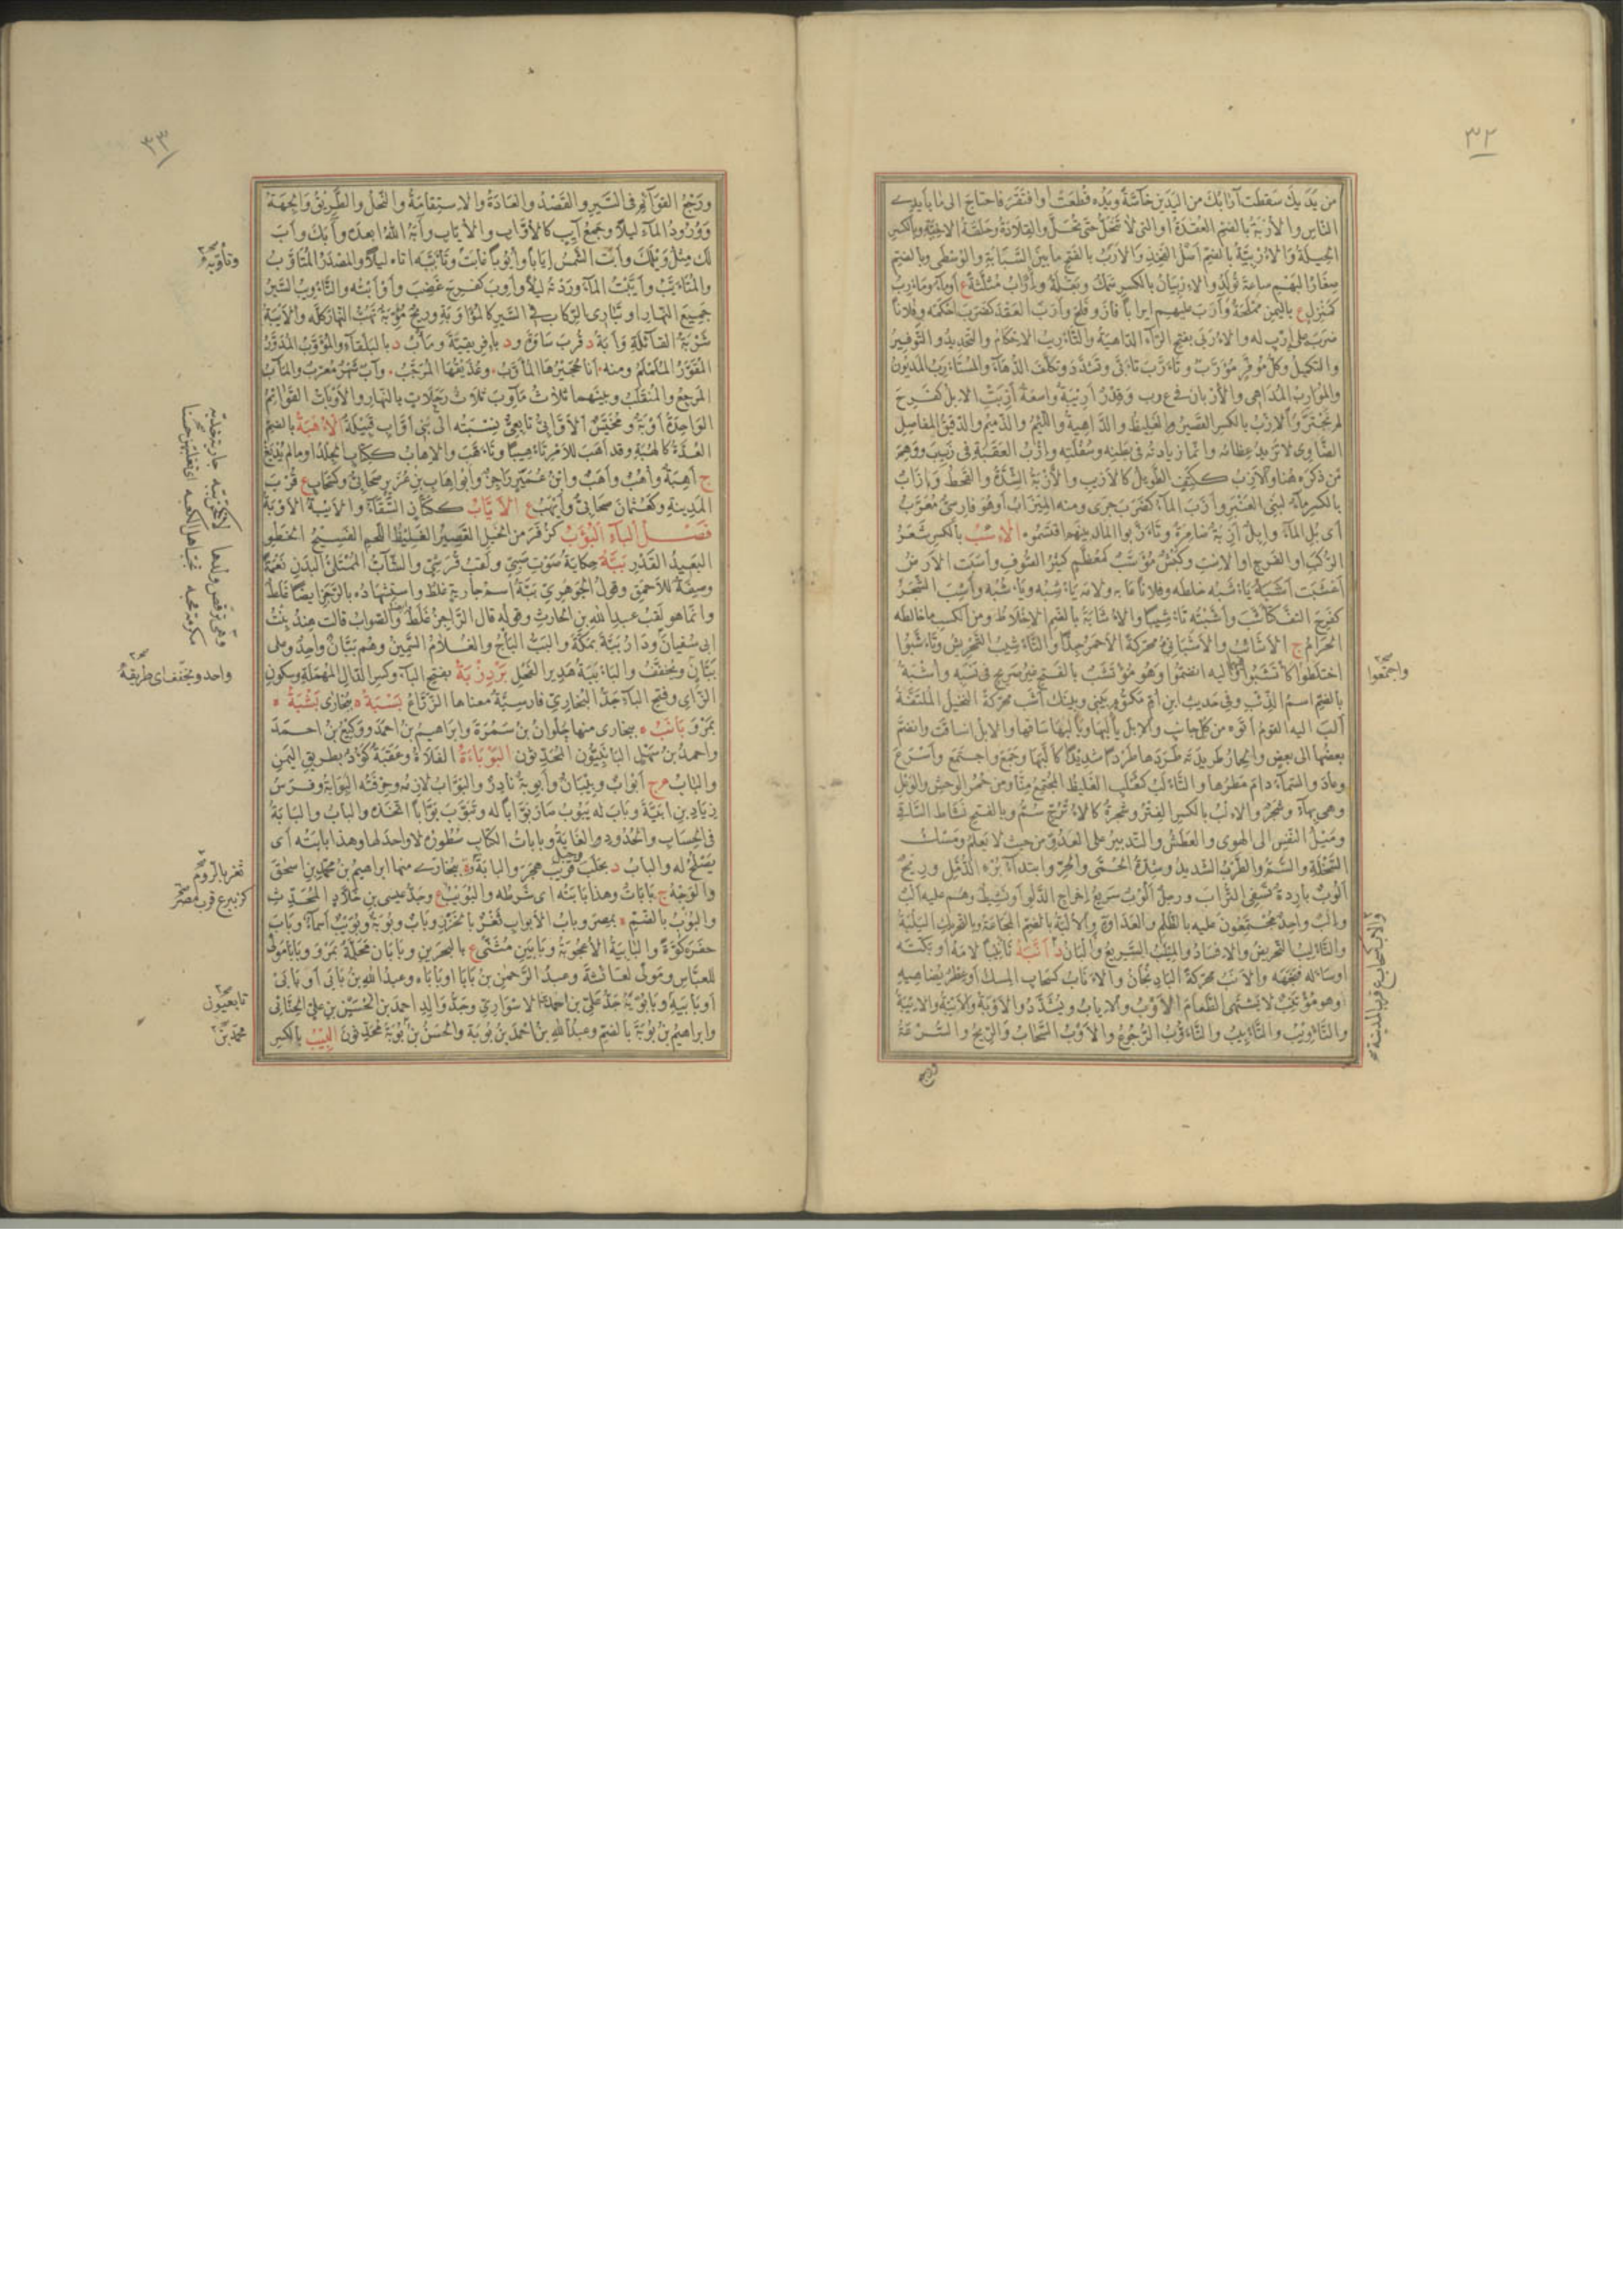 ٣٢
من يَدَيكَ سَقَطَتْ آرَابُكَ من اليَدَينِ خاصّةً ويَدُه قُطِعَتْ او افْتَقَرَ فاحتاجَ الى ما بأيدى
الناسِ والأُرْبَةُ بالضم العُقْدَةُ او التى لا تَنْحَلُّ حتّى تُحَلَّ والقِلادَةُ وحَلْقَةُ الاخِيَّةِ وبالكسر
الحِيلَةُ والأُرْبِيَّةُ بالضم اَصْلُ الفَخِذِ والاَرَبُ بالفتح ما بين السَّبّابَةِ والوُسْطى وبالضم
صِغَارُ البَهْمِ ساعَةَ تُولَدُ والاِرْبِيانُ بالكسر سَمَكٌ وبَقْلَةٌ وأَرَابٌ مُثَلَّثَةً ع أو ماءٌ ومَأْرِبُ
كمَنْزِلٍ ع باليمن مَمْلَحَةٌ وأَرَبَ عليهم ايرابًا فازَ وفَلَجَ وأَرَبَ العَقْدَ كضَرَبَ احْكَمَه وفلانًا
ضَرَبَ على إرْبٍ له والأُرَبَى بفتح الراء الدّاهيةُ والتأريبُ الاحكامُ والتحديدُ والتوفيرُ
والتكميلُ وكلُّ مُوَفَّرٍ مُؤَرَّبٌ وتأرَّبَ تأبَّى وتَشَدَّدَ وتكلَّفَ الدَّهاءَ والمُسْتَأْرَبُ المديونُ
والمُؤارِبُ المُداهِى والأُرْبانُ فى ع ر ب وقِدْرٌ أَرِيبَةٌ واسعةٌ أَزِبَتِ الابلُ كفَرِحَ
لم تَجْتَرَّ والاِزْبُ بالكسر القصيرُ والغليظُ والدّاهيةُ واللئيمُ والدّميمُ والدقيقُ المفاصلِ
الضّاوِىُّ لا تزيدُ عظامُه وانّما زيادتُه فى بطنِه وسُفْلتِه وإزْبُ العَقَبَةِ فى ز ب ب ووَهِمَ
مَنْ ذَكَرَه هُنا والاَزِبُ ككَتِفٍ الطويلُ كالاَزِيبِ والأَزْبَةُ الشِّدَّةُ والقحطُ وإزابٌ
بالكسر ماءٌ لبنى العَنْبَرِ وأَزَبَ الماءُ كضَرَبَ جَرَى ومنه المِيزابُ أو هو فارسىٌّ مُعَرَّبٌ
أى بُلِ الماءَ وإبلٌ آزِبَةٌ ضامِزَةٌ وتَأَزَّبُوا المالَ بينهم اقتسموه الاِسْبُ بالكسر شَعَرُ
الرَّكَبِ او الفرجِ او الاِسْتِ وكَبْشٌ مُؤَسَّبٌ كمُعَظَّمٍ كثيرُ الصُّوفِ وآسَبَتِ الارضُ
اَعْشَبَتْ أَشَبَهُ يَأْشِبُه خلطه وفلانًا عابه ولامَهُ يَأْشِبُه ويَأْشُبُه وأَشِبَ الشجرُ
كفَرِحَ التفَّ كتأشَّبَ وأَشَّبْتُه تَأْشِيبًا والأُشابَةُ بالضم الاخلاطُ ومن الكسب ما خالطه
الحرامُ ج الأَشائِبُ والأَشَبانِىُّ محركةً الاَحْمَرُ جِدًّا والتأشيبُ التحريشُ وتأشَّبُوا
اختلطوا كائتشبوا او اليه انضمّوا وهو مؤتَشَبٌ بالفتح غيرُ صريحٍ فى نسبه وأُشْبَةُ
بالضم اسمُ الذئبِ وفى حديث ابن أمِّ مكتومٍ بينى وبينك أَشَبٌ محركةً النخيلُ الملتفّةُ
أَلَبَ اليه القومُ أَتَوْه من كل جانبٍ والابلَ يألِبُها ويألُبُها ساقها والابلُ انساقت وانضمَّ
بعضُها الى بعضٍ والحمارُ طريدتَه طردها طردًا شديدًا كألَّبَها وجَمَعَ واجتمع وأَسْرَعَ
وعادَ والسماءُ دام مطرُها والتألَبُ كثَعْلَبٍ الغليظُ المجتمعُ منّا ومن حُمُرِ الوحشِ والوَعِلُ
وهى بهاءٍ وشجرٌ والاِلْبُ بالكسر الفِتْرُ وشجرةٌ كالأُتْرُجِّ سَمٌّ وبالفتح نشاطُ السّاقى
ومَيْلُ النفسِ الى الهوى والعطشُ والتدبيرُ على العدوِّ من حيث لا يعلمُ ومَسْكُ
السَّخْلَةِ والسَّمُّ والطَّرْدُ الشديدُ وشدّةُ الحُمَّى والحرِّ وابتداءُ بُرْءِ الدُّمَّلِ وريحٌ
اَلُوبٌ باردةٌ تسفى الترابَ ورجلٌ اَلُوبٌ سريعُ اخراجِ الدلوِ او نشيطٌ وهم عليه اَلْبٌ
وإلْبٌ واحدٌ مجتمعون عليه بالظلم والعداوةِ والأُلْبَةُ بالضم المجاعةُ وبالتحريك اليَلَبَةُ
والتأليبُ التحريضُ والافسادُ والمِئْلَبُ السريعُ وأَلْبانُ د أَنَّبَهُ تأنيبًا لامَه او بكَّتَه
او سأله فنَجَهَه والأَنَبُ محركةً الباذنجانُ والأَنابُ كسحابٍ المسكُ او عطرٌ يُضاهيه
وهو مؤتَنِبٌ لا يشتهى الطعامَ الأَوْبُ والاِيابُ ويُشَدَّدُ والأَوْبَةُ والأَيْبَةُ والاِيبَةُ
والتأويبُ والتأييبُ والتأوُّبُ الرجوعُ والأَوْبُ السحابُ والريحُ والسرعةُ
واجتمعوا صح
والأنب كسحاب ع قرب المدينة
ورجع
٣٣
ورَجْعُ القوائمِ فى السيرِ والقصدُ والعادةُ والاستقامةُ والنحلُ والطريقُ والجهةُ
ووُرودُ الماءِ ليلًا وجمعُ آيبٍ كالأُوّابِ والأُيّابِ وآبَهُ اللهُ ابعده وآبَكَ وآبَ
لك مثلُ ويلَكَ وآبَتِ الشمسُ إيابًا وأُيُوبًا غابت وتَأَوَّبَه أتاه ليلًا والمصدرُ المُتَأَوَّبُ
والمُتَأَيَّبُ وائْتَبْتُ الماءَ وردتُه ليلًا وأَوِبَ كفَرِحَ غَضِبَ وأَوْأَبْتُه والتأويبُ السيرُ
جميعَ النهارِ او تبارى الركابِ فى السيرِ كالمؤاوبةِ وريحٌ مؤوّبةٌ تهبُّ النهارَ كلَّه والآيِبَةُ
شَرْبَةُ القائلةِ وآبَةُ د قرب ساوَةَ ود بافريقيةَ ومَآبُ د بالبلقاءِ والمؤوَّبُ المدوَّرُ
المُقَوَّرُ المُلَمْلَمُ ومنه انا حُجَيْرُها المؤوَّبُ وعُذَيْقُها المُرَجَّبُ وآبُ شهرٌ معرّبٌ والمآبُ
المرجعُ والمنقلَبُ وبينهما ثلاثُ مآوبَ ثلاثُ رحلاتٍ بالنهارِ والأَوْباتُ القوائمُ
الواحدةُ أَوْبَةٌ ومُخَيِّسٌ الأَوّابىُّ تابعىٌّ نسبته الى بنى أوّابٍ قبيلةٌ الأُهْبَةُ بالضم
العُدَّةُ كالهُبَةِ وقد أَهَّبَ للأمر تأهيبًا وتأهَّبَ والاِهابُ ككتابٍ الجلدُ او ما لم يُدْبَغْ
ج آهِبَةٌ وأُهُبٌ وأَهَبٌ وابنُ عُمَيْرٍ راجزٌ وأبو اِهابِ بنُ عُزَيْرٍ صحابىٌّ وكسحابٍ ع قرب
المدينةِ وكعُثمانَ صحابىٌّ وأَيْهَبُ ع الأَيّابُ ككتّانٍ السَّقّاءُ والأَيْبَةُ الأَوْبَةُ
فصل الباء البُؤَبُ كزُفَرَ من الخيلِ القصيرُ الغليظُ اللحمِ الفسيحُ الخَطْوِ
البعيدُ القَدْرِ بَبَّةُ حكايةُ صوتِ صبىٍّ ولقبُ قرشىٍّ والشابُّ الممتلئُ البدنِ نَعْمَةً
وصفةٌ للأحمقِ وقولُ الجوهرىِّ بَبَّةُ اسمُ جاريةٍ غلطٌ واستشهادُه بالرجزِ ايضًا غلطٌ
وانّما هو لقبُ عبدِ اللهِ بنِ الحارثِ وقوله قال الراجزُ غلطٌ ايضا والصوابُ قالت هندُ بنتُ
ابى سفيانَ ودارُ بَبَّةَ بمكّةَ والبَبُّ البأجُ والغلامُ السمينُ وهم ببّانٌ واحدٌ وعلى
بَبّانٍ ويُخَفَّفُ والبأببةُ هديرُ الفحلِ بَرْدِزْبَةُ بفتح الباءِ وكسر الدالِ المهملةِ وسكونِ
الزّاىِ وفتحِ الباءِ جدُّ البخارىِّ فارسيّةٌ معناها الزرّاعُ بَسْبَةُ ة ببخارى بَشْبَةُ ة
بمَرْوَ بانَبُ ة ببخارى منها جلوانُ بنُ سمُرَةَ وابراهيمُ بنُ احمدَ ووكيعُ بنُ احمدَ
واحمدُ بنُ سهلٍ البانبيّون المحدّثون البَوْباةُ الفلاةُ وعَقَبَةٌ كَؤُدٌ بطريقِ اليمنِ
والبابُ م ج أبوابٌ وبيبانٌ وأَبْوِبَةٌ نادرٌ والبوّابُ لازمُه وحرفتُه البِوابةُ وفرسُ
زيادِ بنِ أبيه وبابَ له يبوبُ صار بوّابًا له وتَبَوَّبَ بوّابًا اتّخذه والبابُ والبابةُ
فى الحسابِ والحدودِ والغايةُ وباباتُ الكتابِ سطورُه لا واحدَ لها وهذا بابَتُه أى
يصلحُ له والبابُ د بحلبَ وجبل قرب هَجَرَ والبابةُ ة ببخارى منها ابراهيمُ بنُ محمّدِ بنِ اسحقَ
والوجهُ ج باباتٌ وهذا بابَتُه اى شرطُه والبُوَيْبُ ع وجدُّ عيسى بنِ خلّادٍ المحدّثِ
والبُوبُ بالضم ة بمصرَ وبابُ الأبوابِ ثغرٌ بالخَزَرِ وبابٌ وبوبةُ وبُوَيْبٌ أسماءٌ وبابا
حفرَ كُوّةً والبابيّةُ الأُعجوبةُ وبابَيْنِ مثنّى ع بالبحرين وبابانِ محلّةٌ بمَرْوَ وبابا مولًى
للعبّاسِ ومولًى لعائشةَ وعبدُ الرحمنِ بنُ بابا او باباه وعبدُ اللهِ بنُ بابى او بابَىْ
او بابيه وبابويةُ جدُّ علىِّ بنِ محمّدِ الاسوارىِّ وجدُّ والدِ احمدَ بنِ الحسينِ بنِ علىٍّ الحنّائى
وابراهيمُ بنُ بُوبةَ بالضم وعبدُ اللهِ بنُ احمدَ بنِ بوبةَ والحسنُ بنُ بوبةَ محدّثون البِيبُ بالكسر
وتأيّبه صح
واحد ويخفف اى طريقة صح
ثغر بالروم صح
كزبير ع قرب مصر صح
تابعيون صح
محمد بن صح